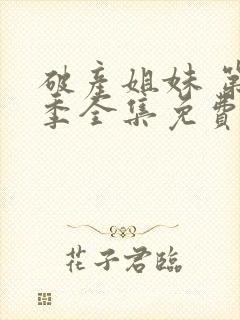 破产姐妹 第
季全集免费
花子君臨